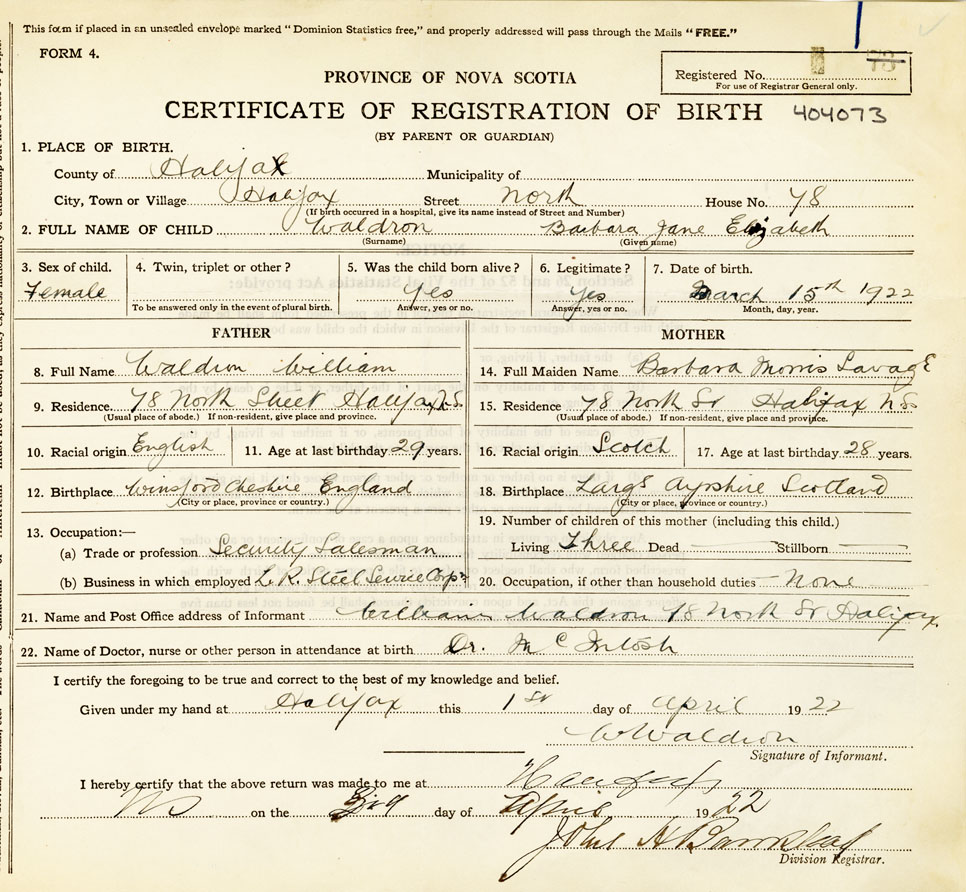 This form if placed in an unsealed envelope marked "Dominion Statistics free," and properly addressed will pass through the Mails "FREE."
FORM 4.
PROVINCE OF NOVA SCOTIA
Registered No. 73
For use of Registrar General only.
CERTIFICATE OF REGISTRATION OF BIRTH 404073
(BY PARENT OR GUARDIAN)
1. PLACE OF BIRTH.
County of Halifax Municipality of
City, Town or Village Halifax Street North House No. 78
(If birth occurred in a hospital, give its name instead of Street and Number)
2. FULL NAME OF CHILD Waldron Barbara Jane Elizabeth
(Surname) (Given name)
3. Sex of child. 4. Twin, triplet or other? 5. Was the child born alive? 6. Legitimate? 7. Date of birth.
Female Yes Yes March 15th 1922
To be answered only in the event of plural birth. Answer, yes or no. Answer, yes or no. Month, day, year.
FATHER
8. Full Name Waldron William
9. Residence. 78 North Street Halifax N.S.
(Usual place of abode.) If non-resident, give place and province.
10. Racial origin English 11. Age at last birthday 29 years.
12. Birthplace Winsford Cheshire England
(City or place, province or country.)
13. Occupation:—
(a) Trade or profession Security Salesman
(b) Business in which employed L.R. Steel Service Corpn
MOTHER
14. Full Maiden Name Barbara Morris Savage
15. Residence 78 North St Halifax N.S.
(Usual place of abode.) If non-resident, give place and province.
16. Racial origin Scotch 17. Age at last birthday 28 years.
18. Birthplace Largs Ayrshire Scotland
(City or place, province or country.)
19. Number of children of this mother (including this child.)
Living Three Dead — Stillborn —
20. Occupation, if other than household duties — None
21. Name and Post Office address of Informant William Waldron 78 North St Halifax.
22. Name of Doctor, nurse or other person in attendance at birth Dr. McIntosh
I certify the foregoing to be true and correct to the best of my knowledge and belief.
Given under my hand at Halifax this 1st day of April 1922
W Waldron
Signature of Informant.
I hereby certify that the above return was made to me at Halifax
NS on the 3rd day of April 1922
John H Barnstead
Division Registrar.